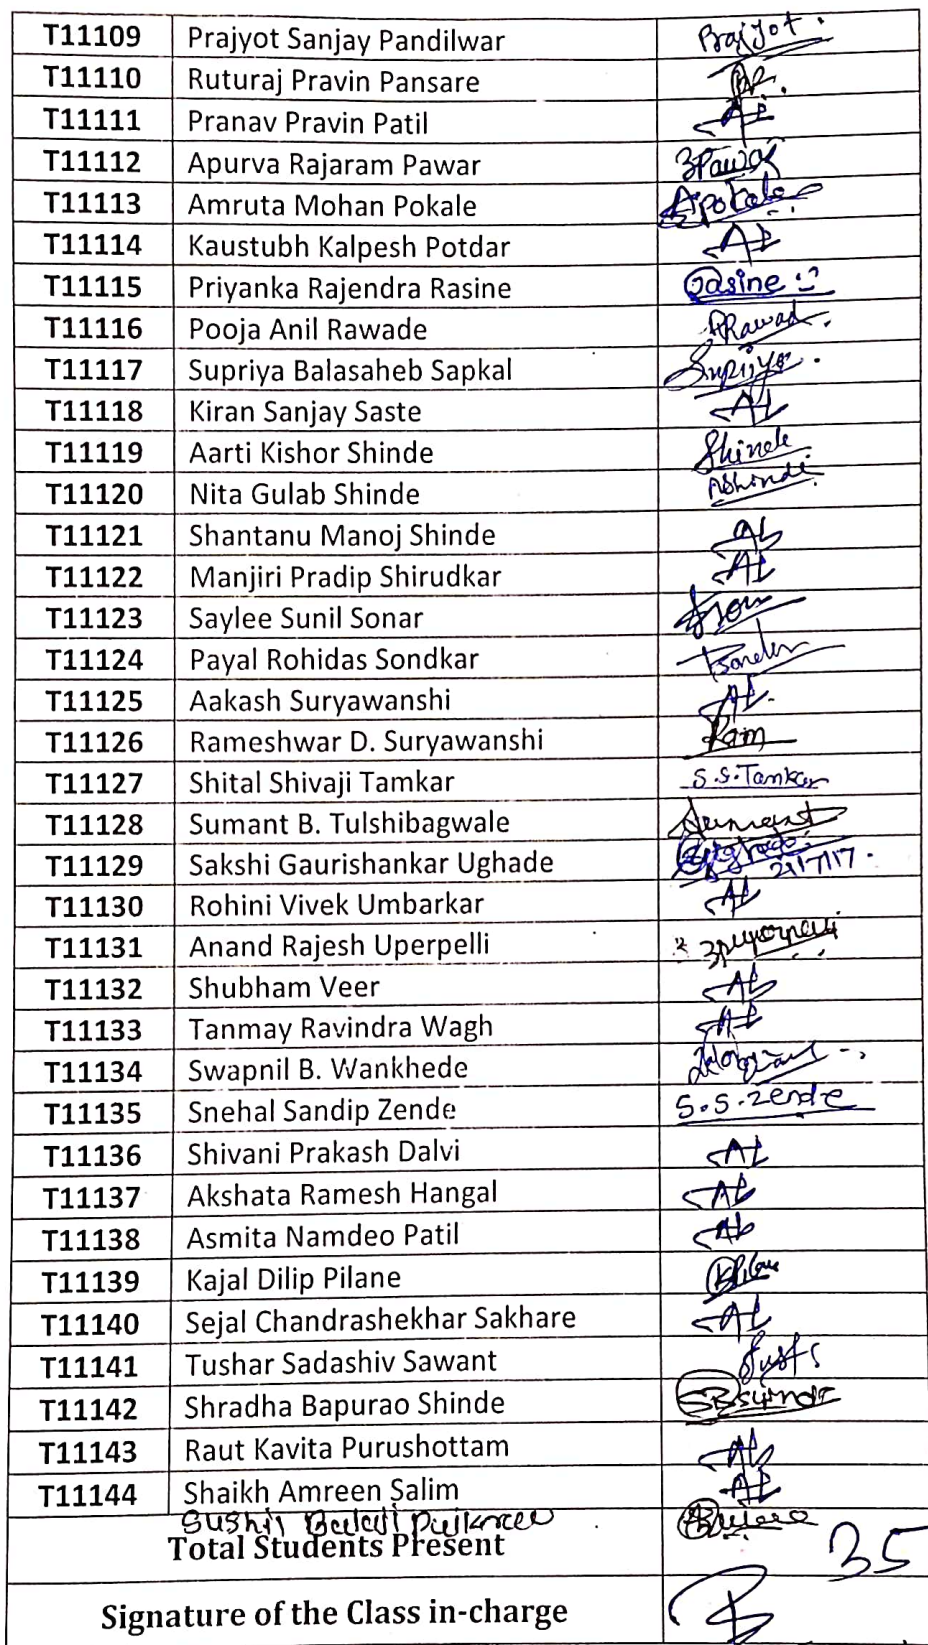 T11109 Prajyot Sanjay Pandilwar Prajyot.
T11110 Ruturaj Pravin Pansare
T11111 Pranav Pravin Patil AB
T11112 Apurva Rajaram Pawar Pawar
T11113 Amruta Mohan Pokale Apokale
T11114 Kaustubh Kalpesh Potdar AB
T11115 Priyanka Rajendra Rasine Rasine
T11116 Pooja Anil Rawade
T11117 Supriya Balasaheb Sapkal Supriya.
T11118 Kiran Sanjay Saste AB
T11119 Aarti Kishor Shinde Shinde
T11120 Nita Gulab Shinde NShinde.
T11121 Shantanu Manoj Shinde AB
T11122 Manjiri Pradip Shirudkar AB
T11123 Saylee Sunil Sonar
T11124 Payal Rohidas Sondkar
T11125 Aakash Suryawanshi AB
T11126 Rameshwar D. Suryawanshi Ram
T11127 Shital Shivaji Tamkar S.S.Tamkar
T11128 Sumant B. Tulshibagwale Sumant
T11129 Sakshi Gaurishankar Ughade
T11130 Rohini Vivek Umbarkar AB
T11131 Anand Rajesh Uperpelli
T11132 Shubham Veer AB
T11133 Tanmay Ravindra Wagh AB
T11134 Swapnil B. Wankhede
T11135 Snehal Sandip Zende S.S.Zende
T11136 Shivani Prakash Dalvi AB
T11137 Akshata Ramesh Hangal AB
T11138 Asmita Namdeo Patil Ab
T11139 Kajal Dilip Pilane
T11140 Sejal Chandrashekhar Sakhare AB
T11141 Tushar Sadashiv Sawant
T11142 Shradha Bapurao Shinde
T11143 Raut Kavita Purushottam Ab
T11144 Shaikh Amreen Salim AB
Sushil
Total Students Present 35
Signature of the Class in-charge